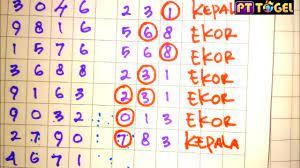 PT TOGEL
3 0 4 6 2 3 1 KEPALA
9 8 1 6 5 6 8 EKOR
1 5 7 6 5 6 8 EKOR
3 6 8 8 2 3 1 EKOR
9 7 6 8 2 3 1 EKOR
9 0 3 2 0 1 3 EKOR
2 7 9 0 7 8 3 KEPALA
4 6 7 1